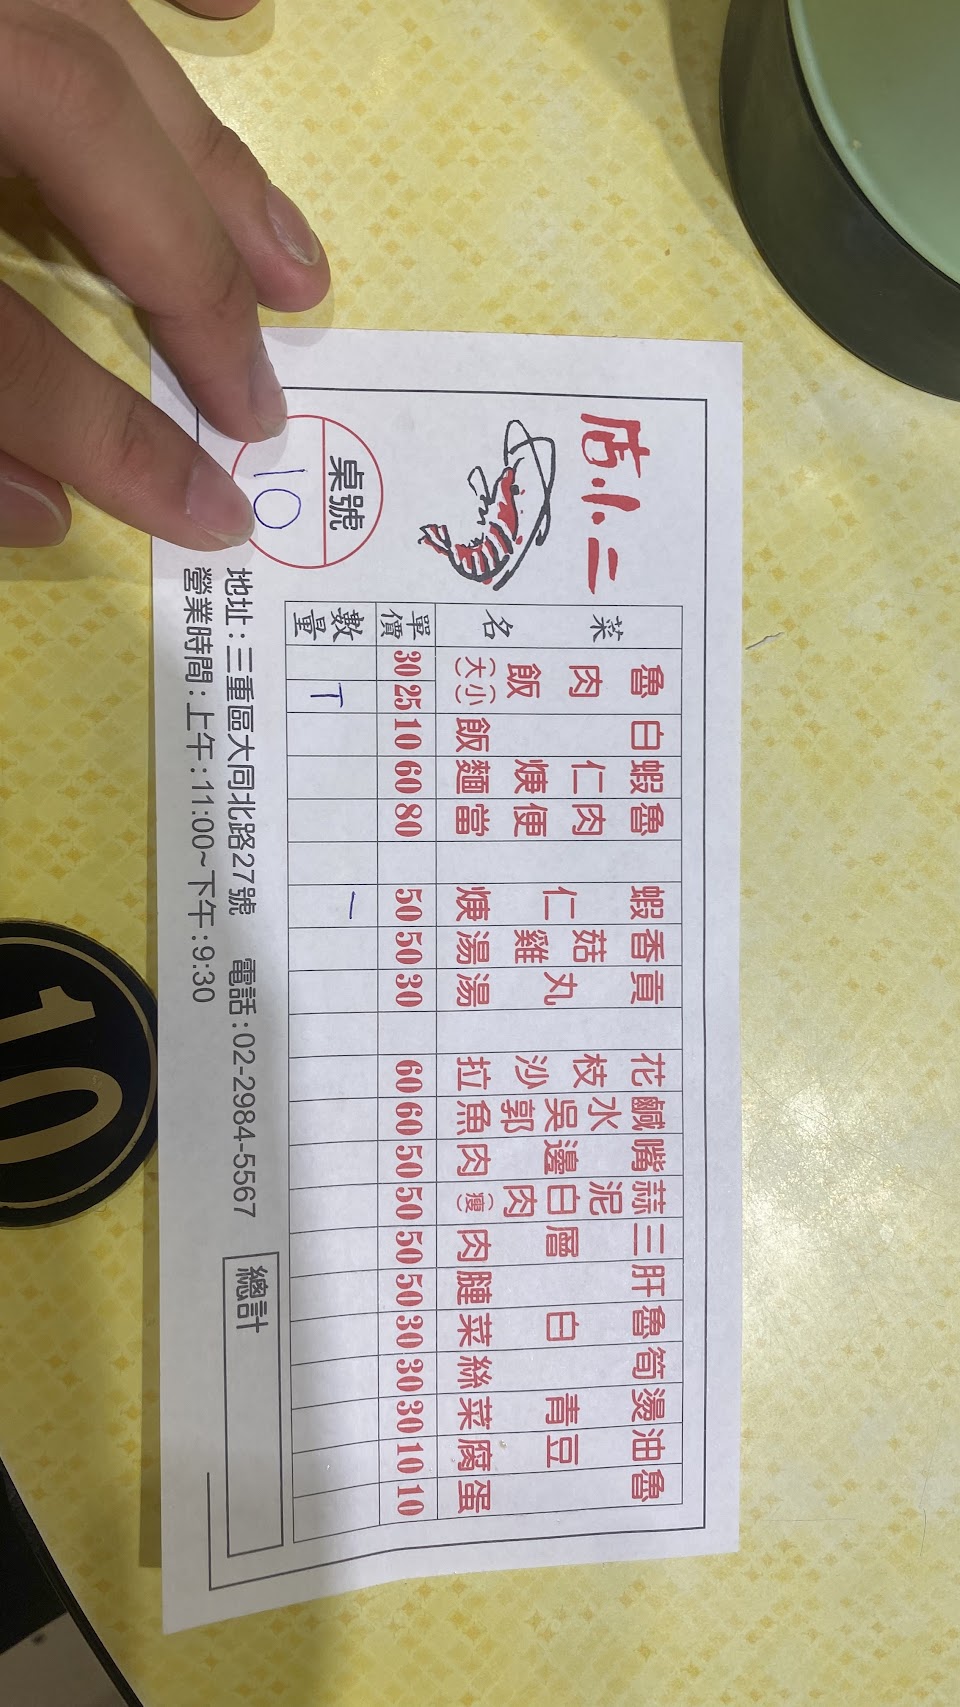 店小二
桌號
10
菜名 單價 數量
魯肉飯(大) 30
(小) 25 T
白飯 10
蝦仁焿麵 60
魯肉便當 80
蝦仁焿 50 一
香菇雞湯 50
貢丸湯 30
花枝沙拉 60
鹹水吳郭魚 60
嘴邊肉 50
蒜泥白肉(瘦) 50
三層肉 50
肝腱 50
魯白菜 30
筍絲 30
燙青菜 30
油豆腐 10
魯蛋 10
地址:三重區大同北路27號 電話:02-2984-5567
營業時間:上午:11:00~下午:9:30
總計
10